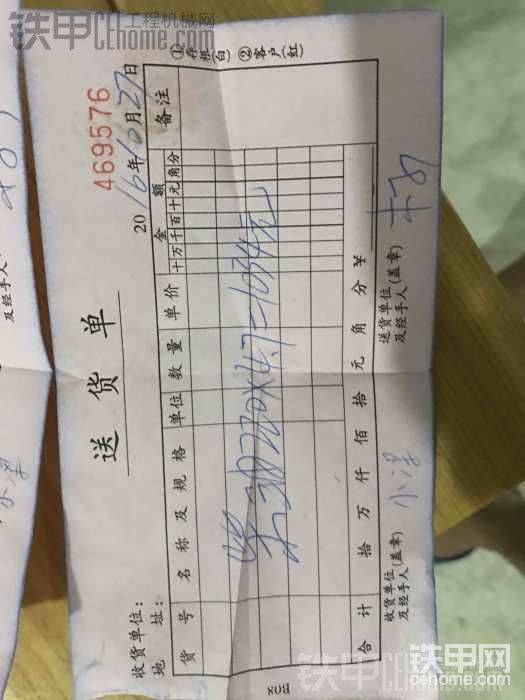 铁甲工程机械网
CEhome.com
送货单
469576
收货单位：
地 址：
2016年10月27日
货号 名称及规格 单位 数量 单价 金额 备注
十万千百十元角分
柴油 220×4.7=1034元
合计 拾 万 仟 佰 拾 元 角 分 ¥
收货单位及经手人(盖章)
送货单位及经手人(盖章)
①存根(白) ②客户(红)
及经手人
铁甲工程机械网
CEhome.com
铁甲网
cehome.com